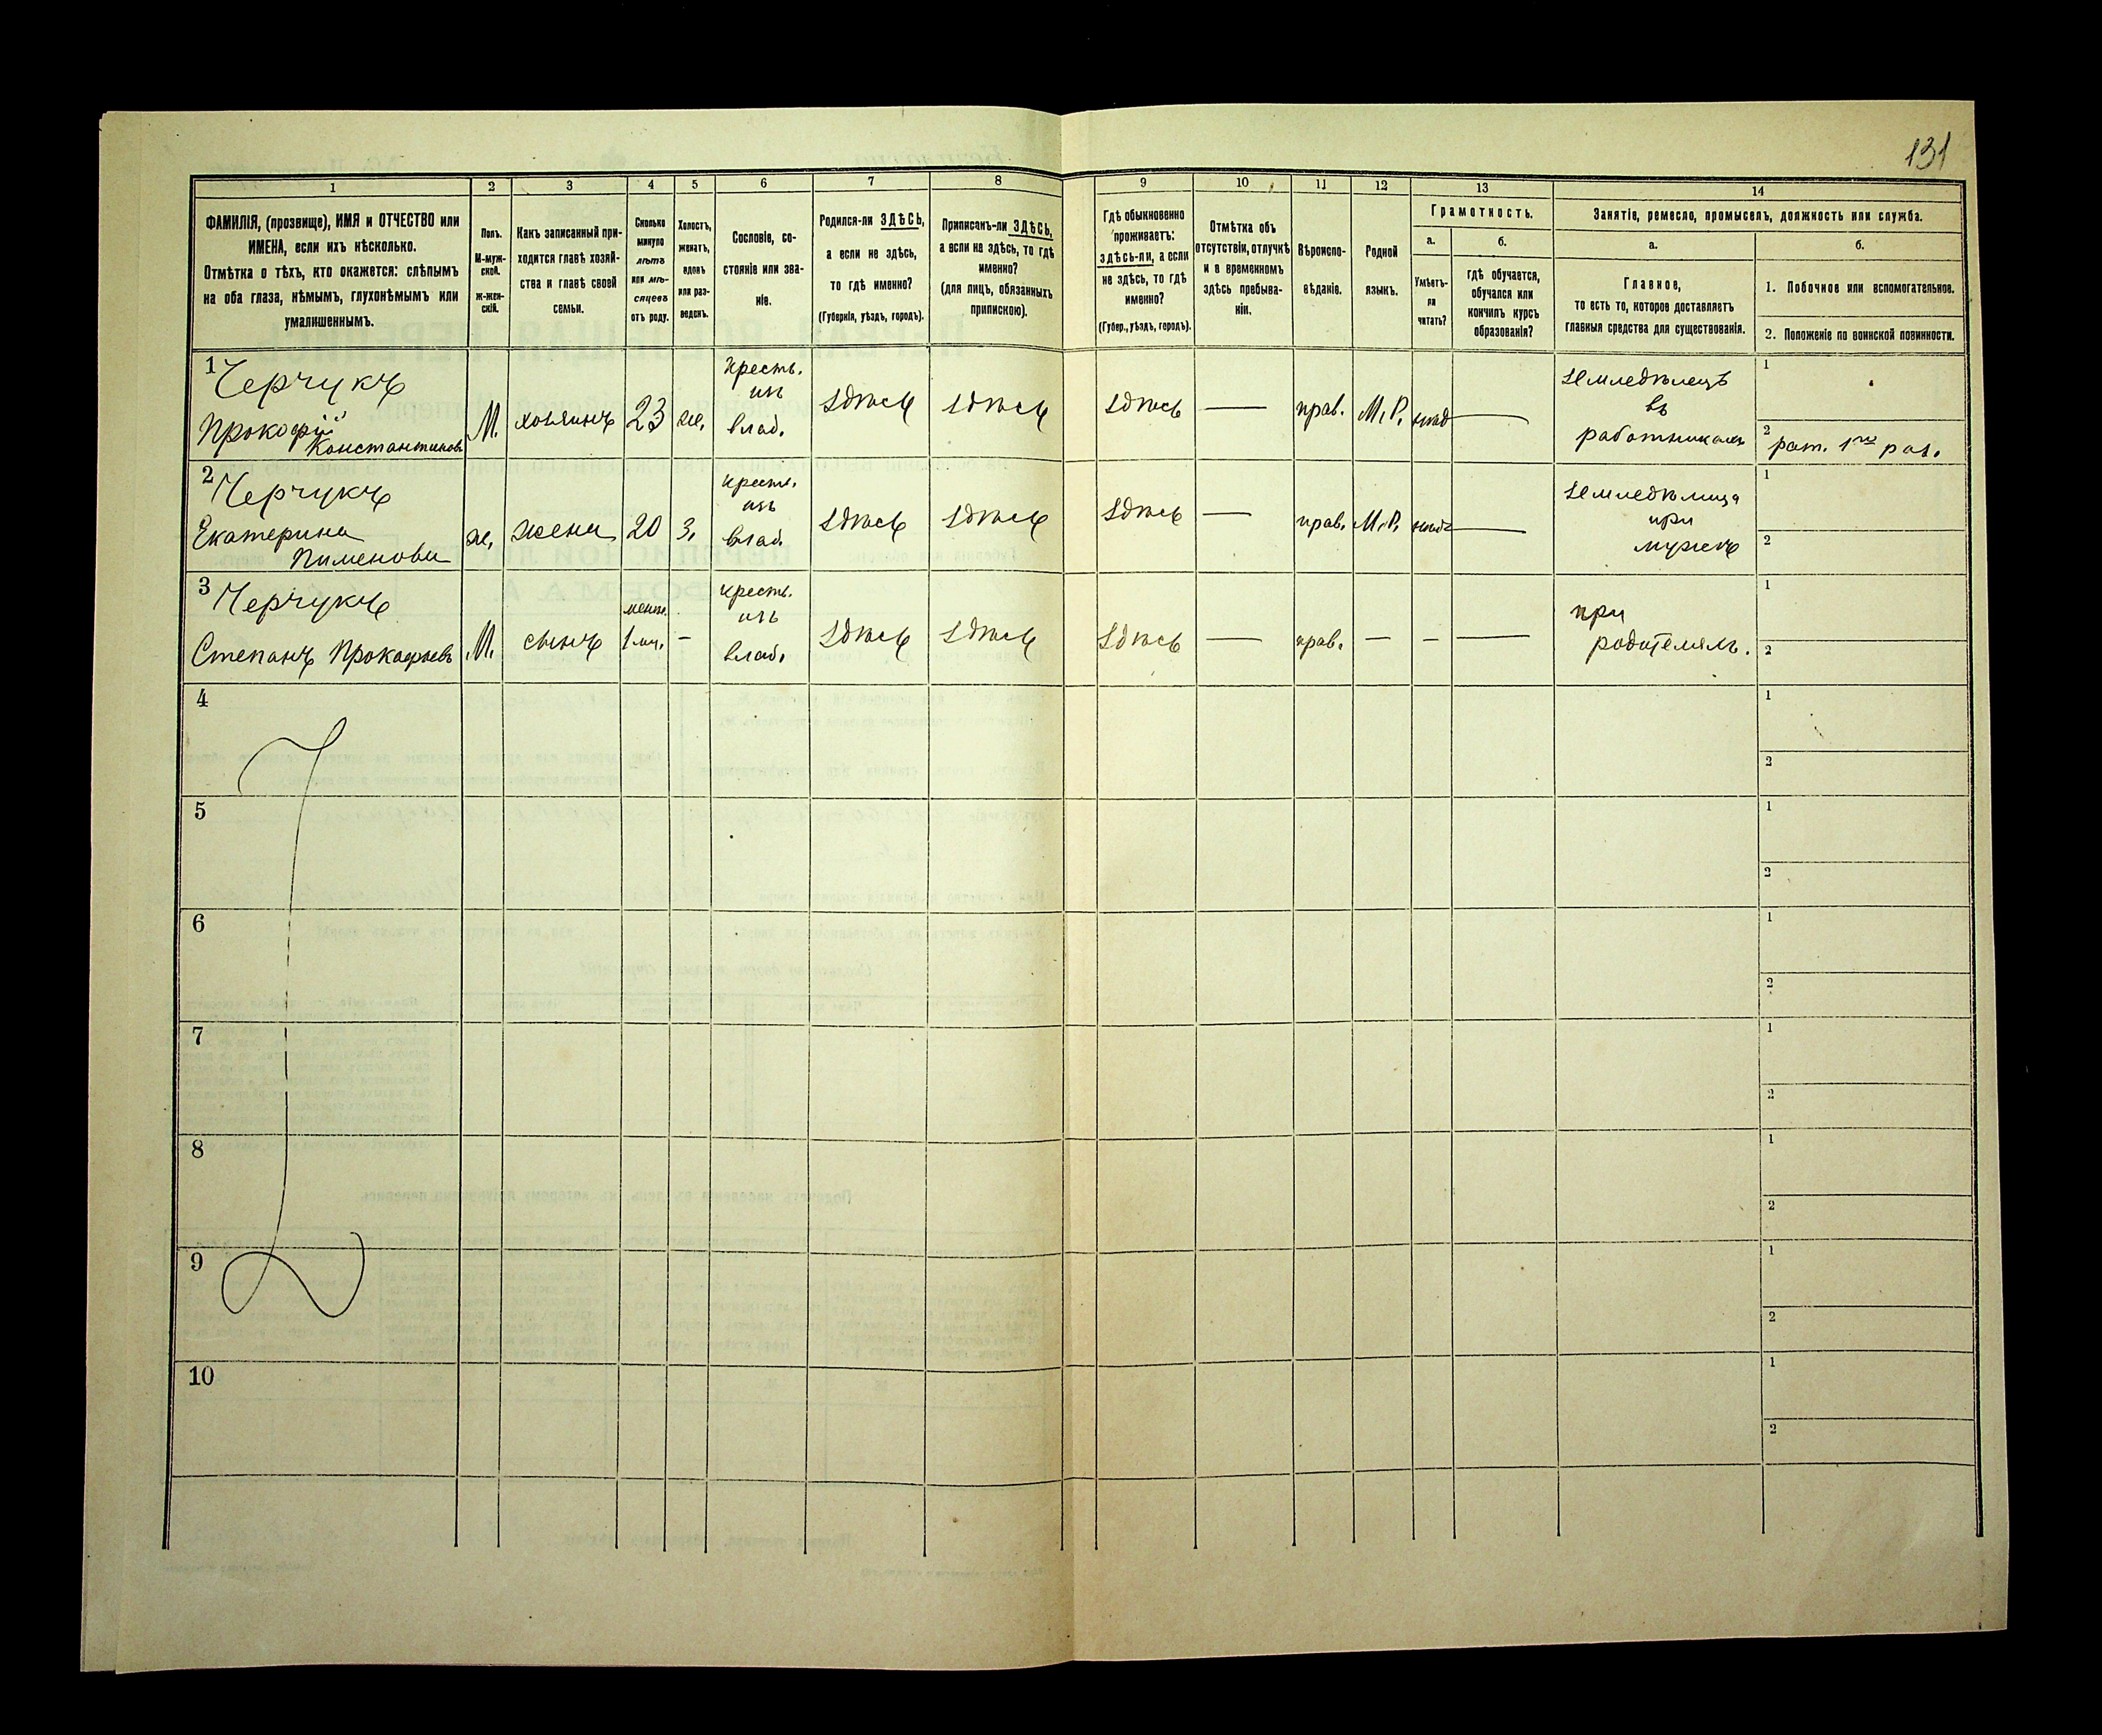 131
1 2 3 4 5 6 7 8 9 10 11 12 13 14
ФАМИЛІЯ, (прозвище), ИМЯ и ОТЧЕСТВО или
ИМЕНА, если ихъ нѣсколько.
Отмѣтка о тѣхъ, кто окажется: слѣпымъ
на оба глаза, нѣмымъ, глухонѣмымъ или
умалишеннымъ.
Полъ.
М-муж-
ской.
Ж-жен-
скій.
Какъ записанный при-
ходится главѣ хозяй-
ства и главѣ своей
семьи.
Сколько
минуло
лѣтъ
или мѣ-
сяцевъ
отъ роду.
Холостъ,
женатъ,
вдовъ
или раз-
веденъ.
Сословіе, со-
стояніе или зва-
ніе.
Родился-ли ЗДѢСЬ,
а если не здѣсь,
то гдѣ именно?
(Губернія, уѣздъ, городъ).
Приписанъ-ли ЗДѢСЬ,
а если не здѣсь, то гдѣ
именно?
(для лицъ, обязанныхъ
припискою).
Гдѣ обыкновенно
проживаетъ:
здѣсь-ли, а если
не здѣсь, то гдѣ
именно?
(Губер., уѣздъ, городъ).
Отмѣтка объ
отсутствіи, отлучкѣ
и о временномъ
здѣсь пребыва-
ніи.
Вѣроиспо-
вѣданіе.
Родной
языкъ.
Грамотность.
а.
Умѣетъ-
ли
читать?
б.
гдѣ обучается,
обучался или
кончилъ курсъ
образованія?
Занятіе, ремесло, промыселъ, должность или служба.
а.
Главное,
то есть то, которое доставляетъ
главныя средства для существованія.
б.
1. Побочное или вспомогательное.
2. Положеніе по воинской повинности.
1
Черчукъ
Прокофій
Константиновъ
М.
хозяинъ
23
же.
Кресть.
изъ
влад.
здѣсь
здѣсь
здѣсь
—
прав.
М.Р.
—
земледѣлецъ
въ
работникахъ
1
2 рат. 1го раз.
2
Черчукъ
Екатерина
Пименова
ж.
жена
20
з.
Кресть.
изъ
влад.
здѣсь
здѣсь
здѣсь
—
прав.
М.Р.
—
земледѣлица
при
мужѣ
1
2
3
Черчукъ
Степанъ Прокофьевъ
М.
сынъ
1 м.
—
Кресть.
изъ
влад.
здѣсь
здѣсь
здѣсь
—
прав.
—
—
—
при
родителяхъ.
1
2
4
1
2
5
1
2
6
1
2
7
1
2
8
1
2
9
1
2
10
1
2